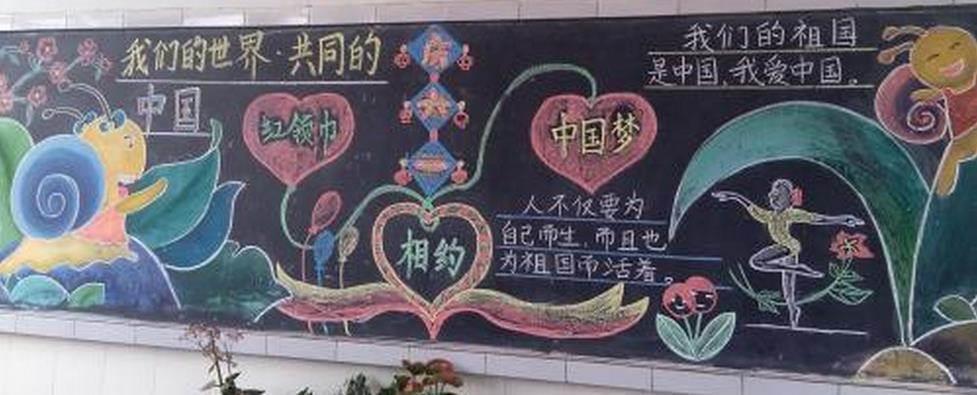 我们的世界·共同的
中国
红领巾
相约
中国梦
人不仅要为
自己而生，而且也
为祖国而活着。
我们的祖国
是中国，我爱中国。